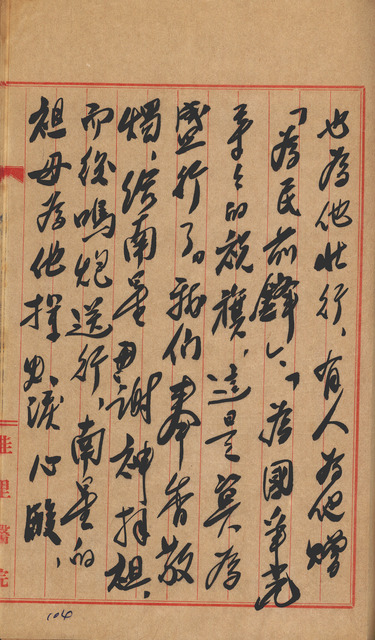 也為他壯行、有人為他贈
「為民前鋒」、「為國爭光
爭々的祝旗、這是莫為
盛行了。我们奉香敬
燭、给南星母謝神拜祖、
而後鳴炮送行、南星的
祖母為他擇 淚心酸、
佳里醫院
104